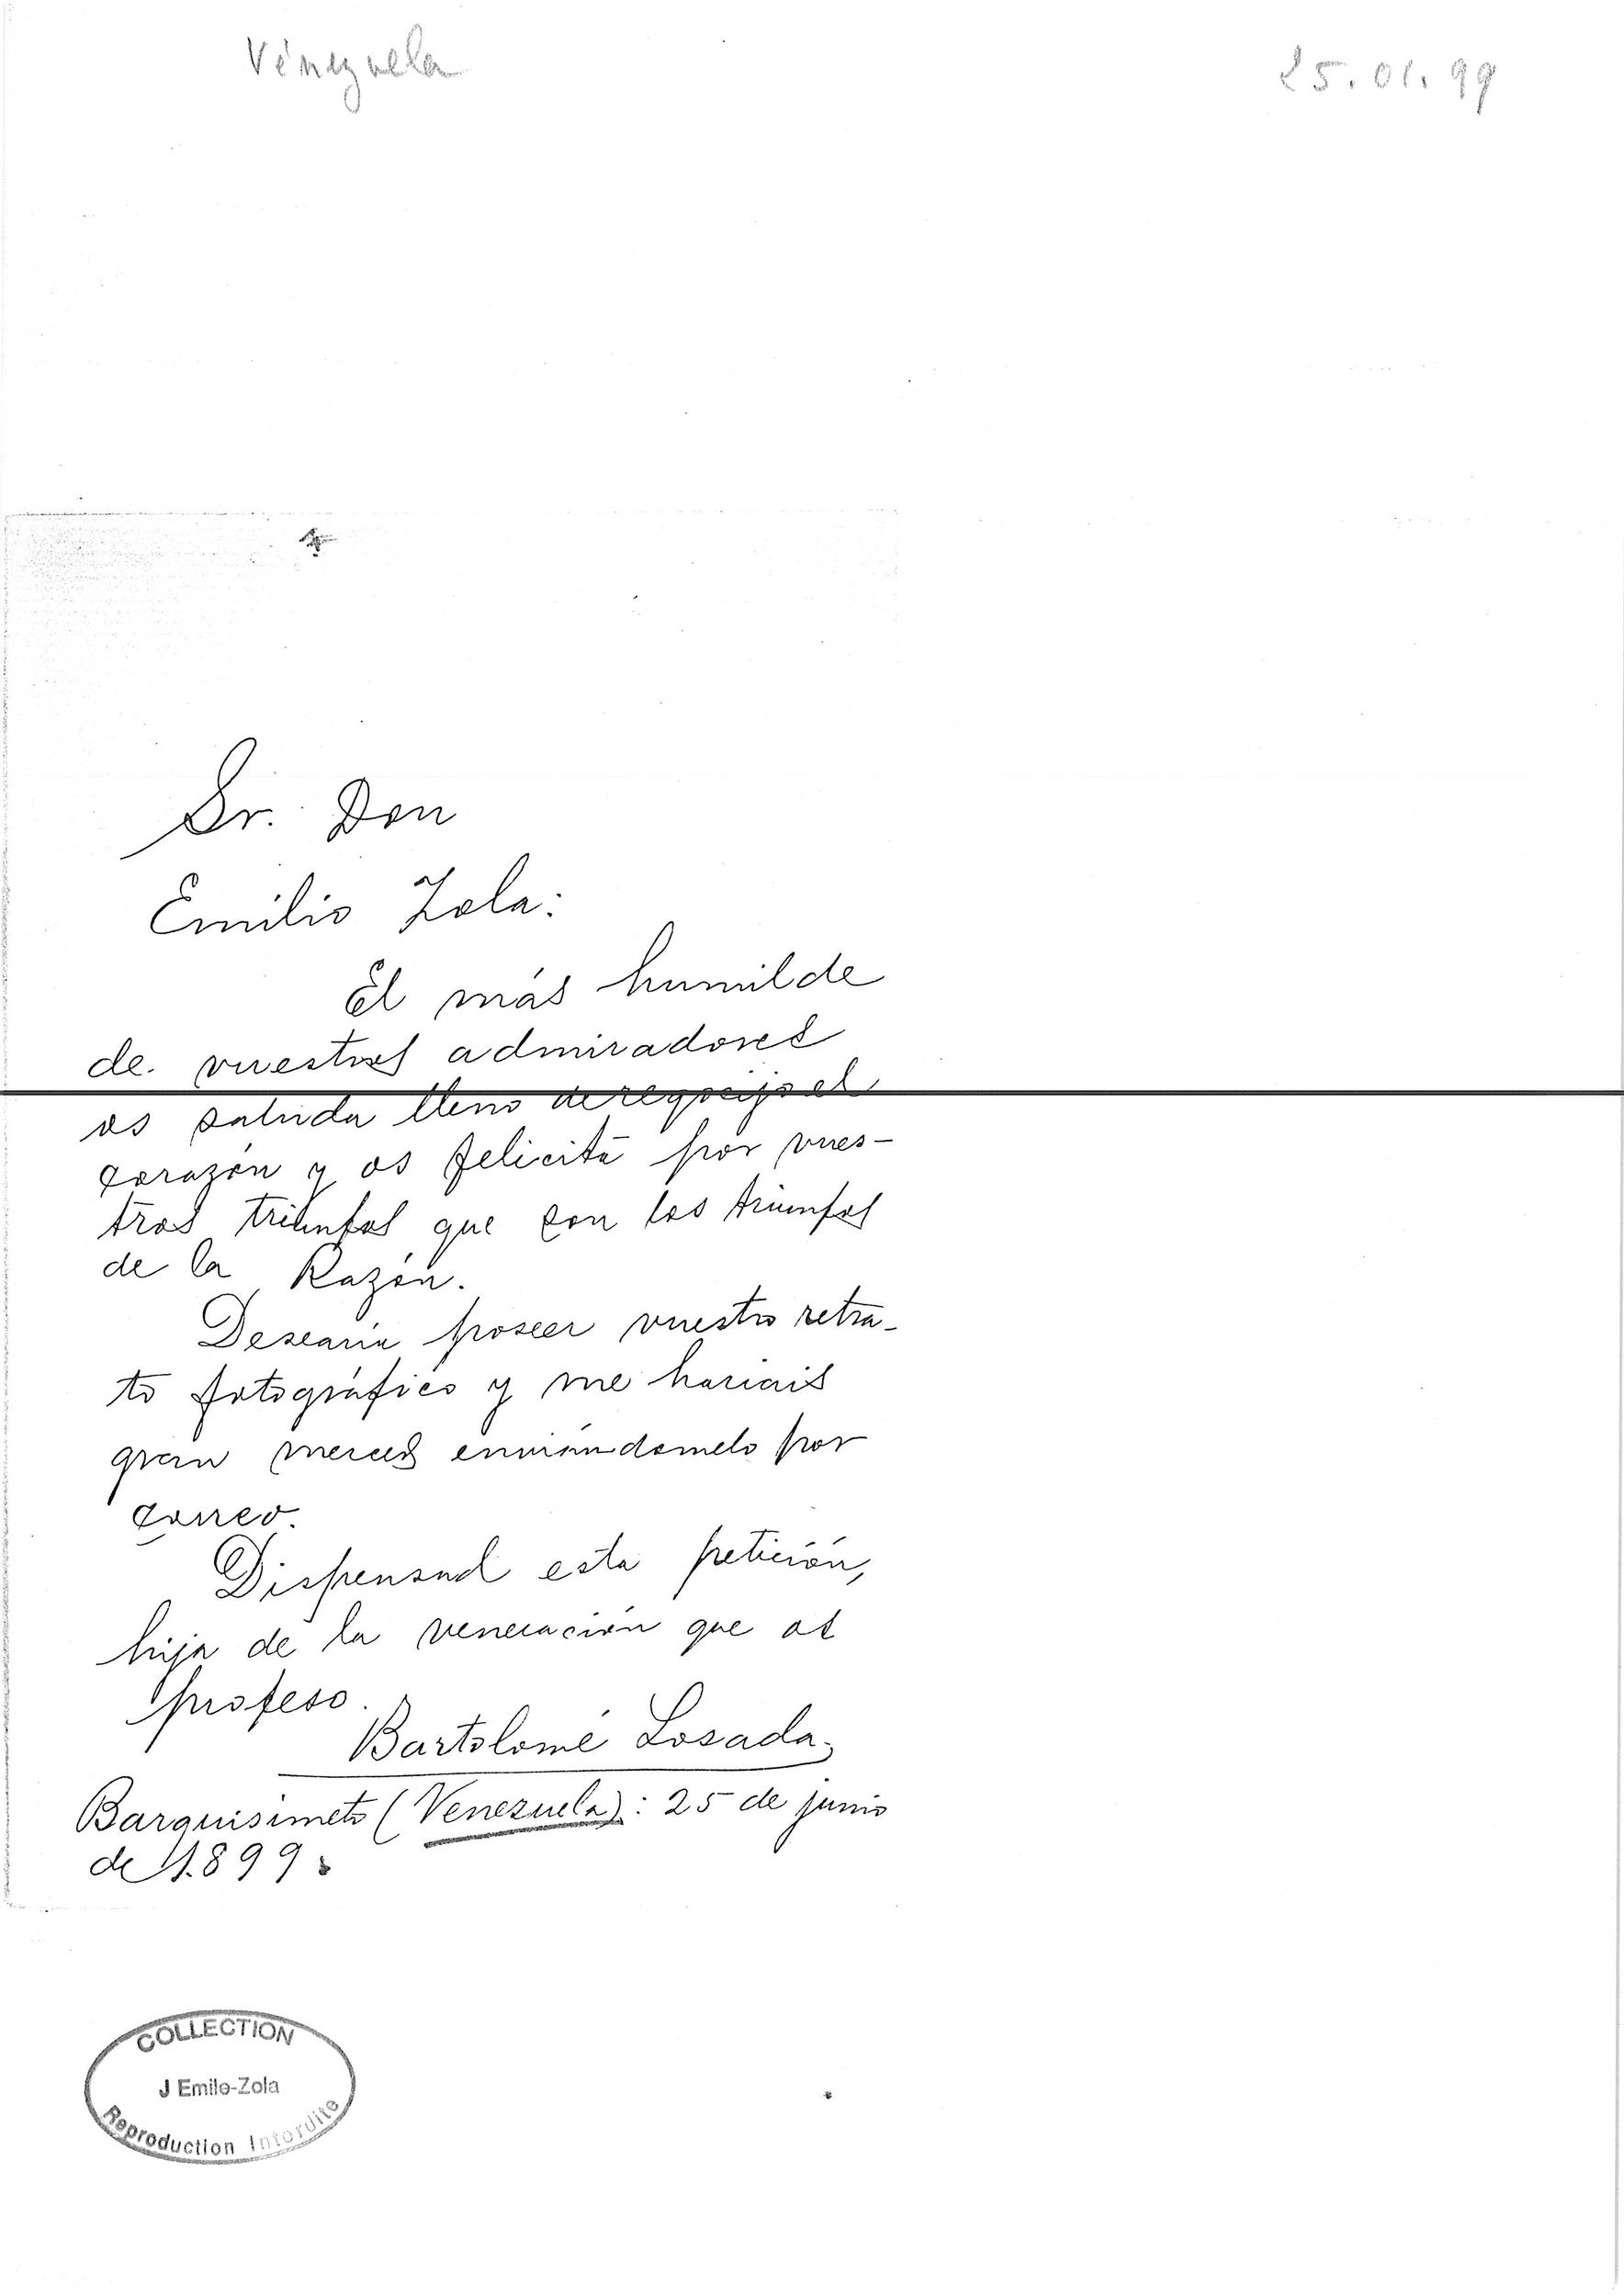 Vénezuela
25.01.99
Sr. Don
Emilio Zola:
El más humilde
de vuestros admiradores
os saluda lleno de regocijo el
corazón y os felicita por vues-
tros triunfos que son los triunfos
de la Razón.
Desearía poseer vuestro retra-
to fotográfico y me haríais
gran merced enviándomelo por
correo.
Dispensad esta petición,
hija de la veneración que os
profeso.
Bartolomé Losada.
Barquisimeto (Venezuela): 25 de junio
de 1.899.
COLLECTION
J Emile-Zola
Reproduction Interdite